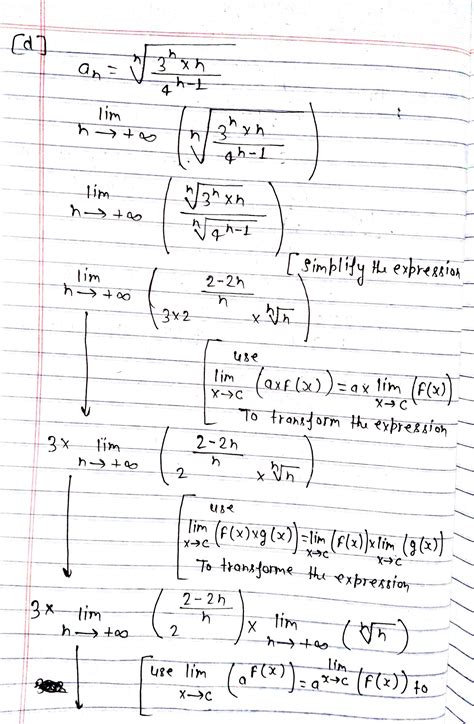 [d]
aₙ = ⁿ√(3ⁿ × n / 4ⁿ⁻¹)
lim n → +∞ (ⁿ√(3ⁿ × n / 4ⁿ⁻¹))
lim n → +∞ (ⁿ√(3ⁿ × n) / ⁿ√(4ⁿ⁻¹))
[Simplify the expression
lim n → +∞ (3 × 2^((2-2n)/n) × ⁿ√n)
use
lim x→c (a×f(x)) = a× lim x→c (f(x))
To transform the expression
3× lim n → +∞ (2^((2-2n)/n) × ⁿ√n)
use
lim x→c (f(x)×g(x)) = lim x→c (f(x)) × lim x→c (g(x))
To transforme the expression
3× lim n → +∞ (2^((2-2n)/n)) × lim n → +∞ (ⁿ√n)
[use lim x→c (a^f(x)) = a^(lim x→c) (f(x)) to